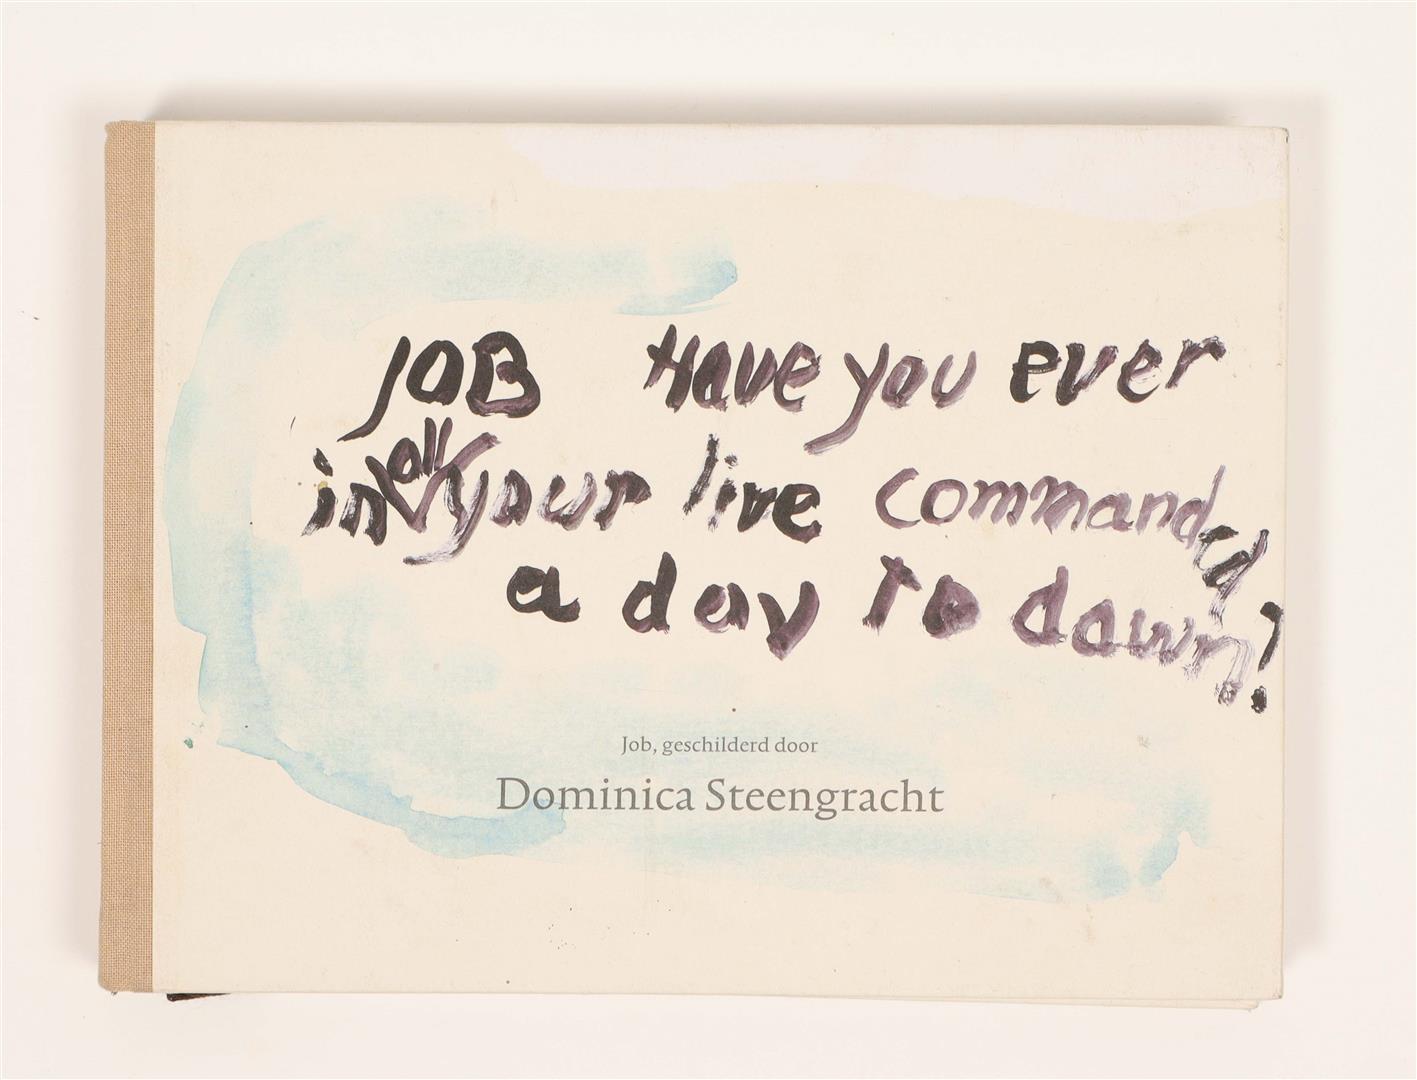 JOB Have you ever
in all your live commanded
a day to dawn?
Job, geschilderd door
Dominica Steengracht